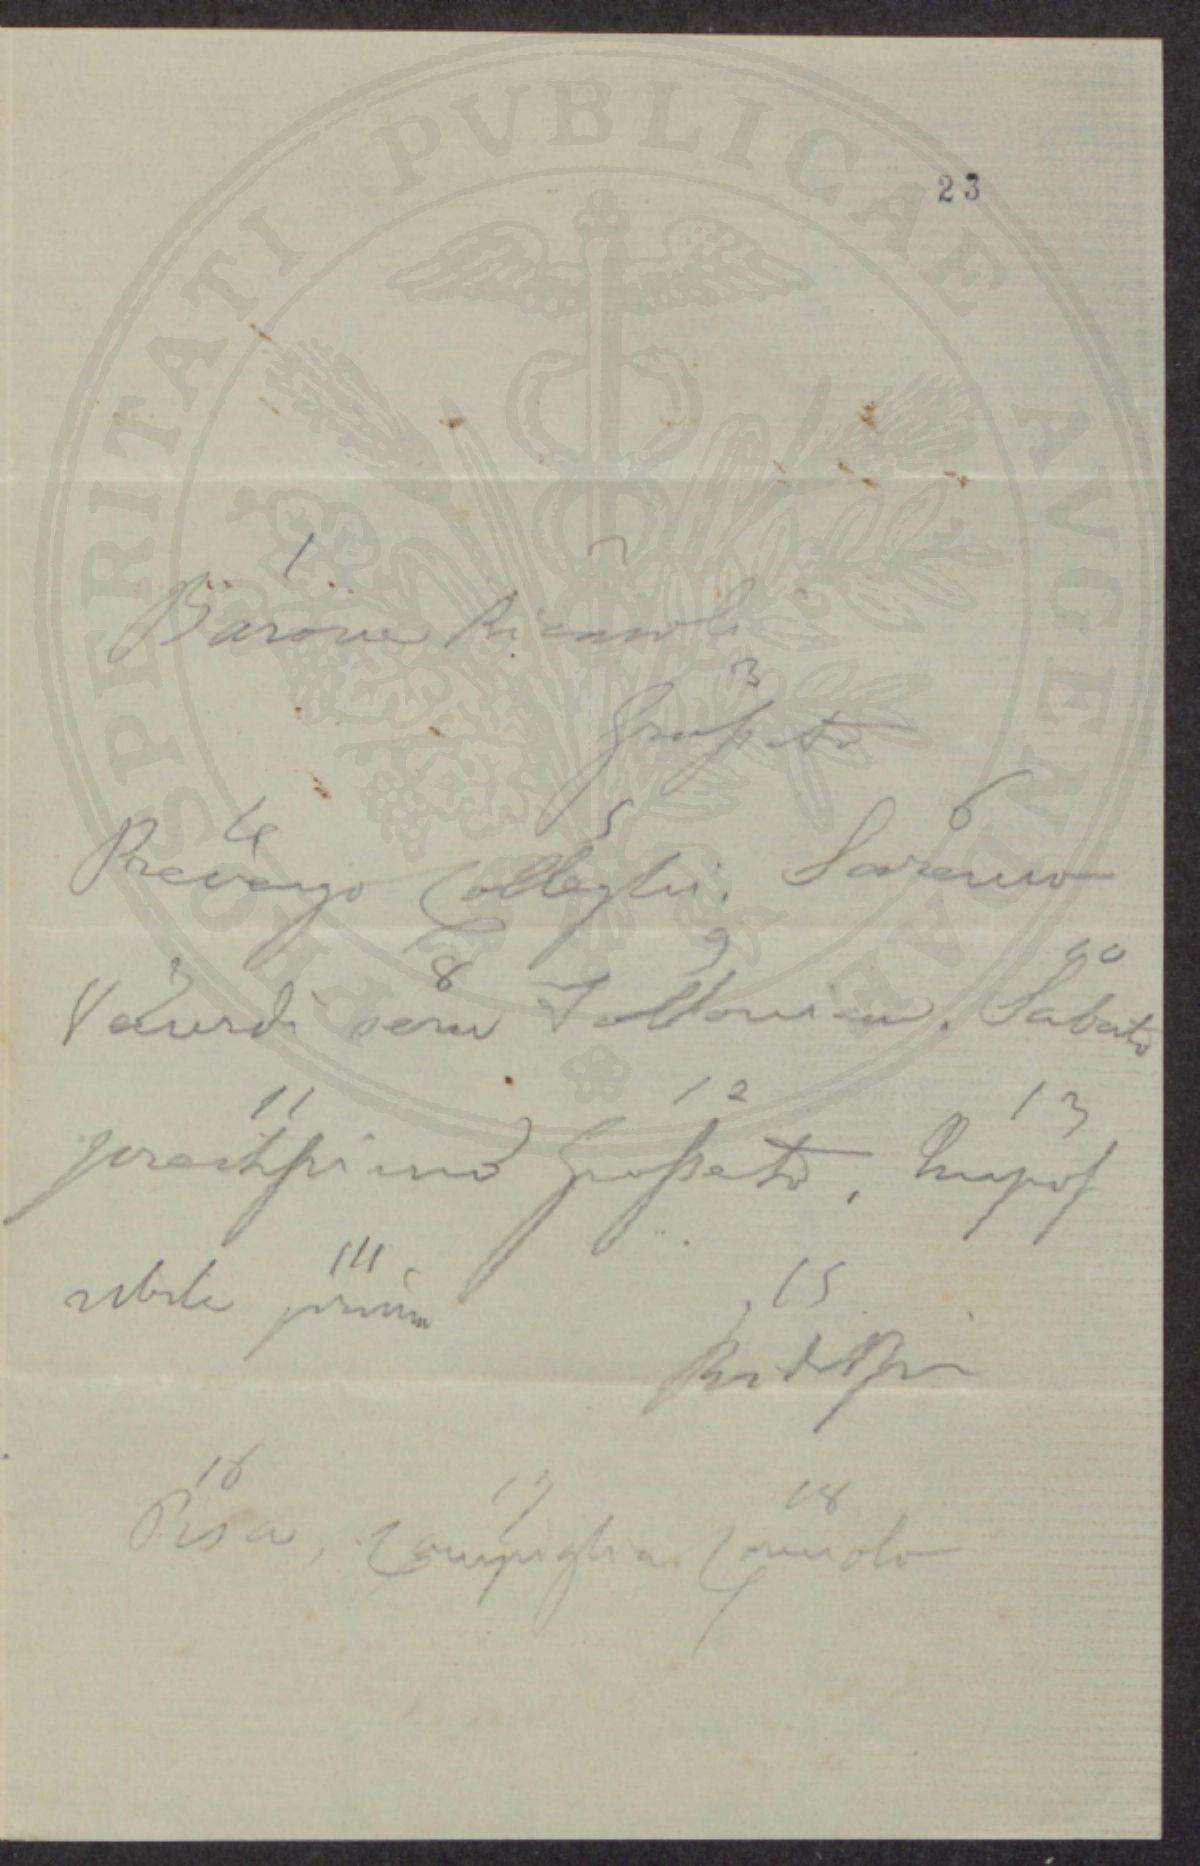 PROSPERITATI PVBLICAE AVGENDAE
23
1 2
Barone Ricasoli
3
Grosseto
4 5 6
Prevengo Colleghi. Saremo
7 8 9 10
Venerdi sera Follonica. Sabato
11 12 13
prestissimo Grosseto. Impos
14
sibile prima
15
Ridolfi
16 17 18
Pisa, Campiglia